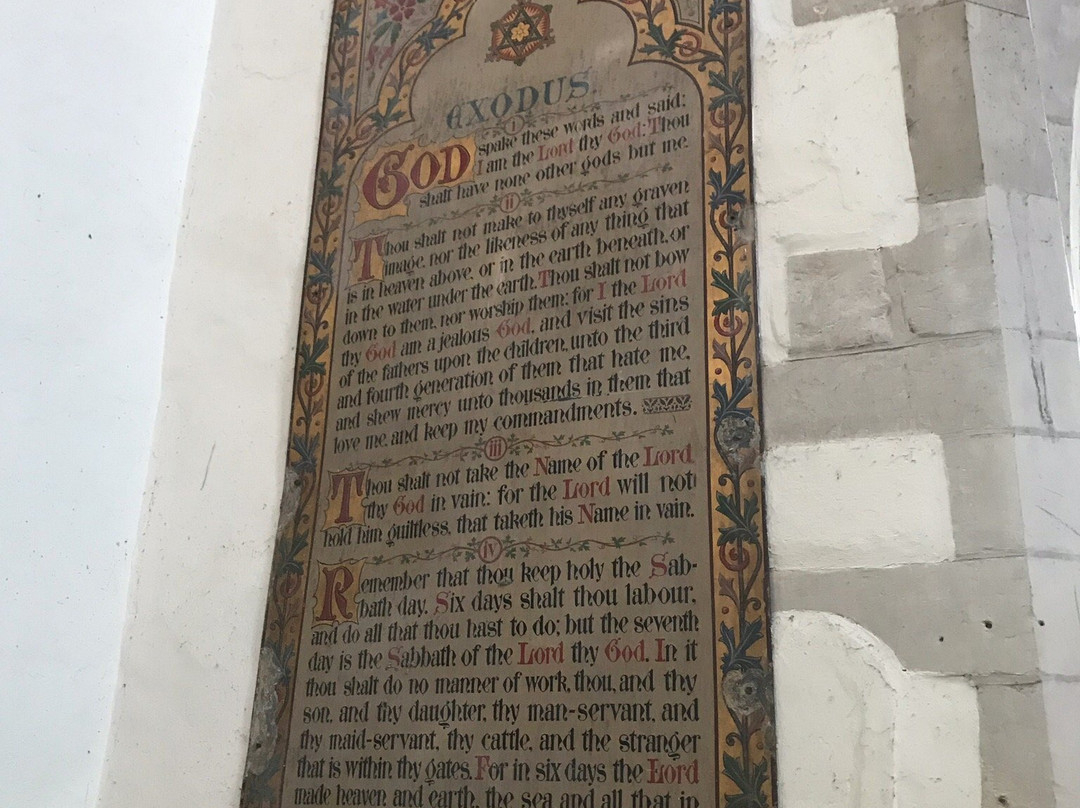 EXODUS
i
GOD spake these words and said:
I am the Lord thy God: Thou
shalt have none other gods but me.
ii
Thou shalt not make to thyself any graven
image, nor the likeness of any thing that
is in heaven above, or in the earth beneath, or
in the water under the earth. Thou shalt not bow
down to them, nor worship them: for I the Lord
thy God am a jealous God, and visit the sins
of the fathers upon the children, unto the third
and fourth generation of them that hate me,
and shew mercy unto thousands in them that
love me, and keep my commandments.
iii
Thou shalt not take the Name of the Lord
thy God in vain: for the Lord will not
hold him guiltless, that taketh his Name in vain.
iv
Remember that thou keep holy the Sab-
bath day. Six days shalt thou labour,
and do all that thou hast to do; but the seventh
day is the Sabbath of the Lord thy God. In it
thou shalt do no manner of work, thou, and thy
son, and thy daughter, thy man-servant, and
thy maid-servant, thy cattle, and the stranger
that is within thy gates. For in six days the Lord
made heaven and earth, the sea and all that in